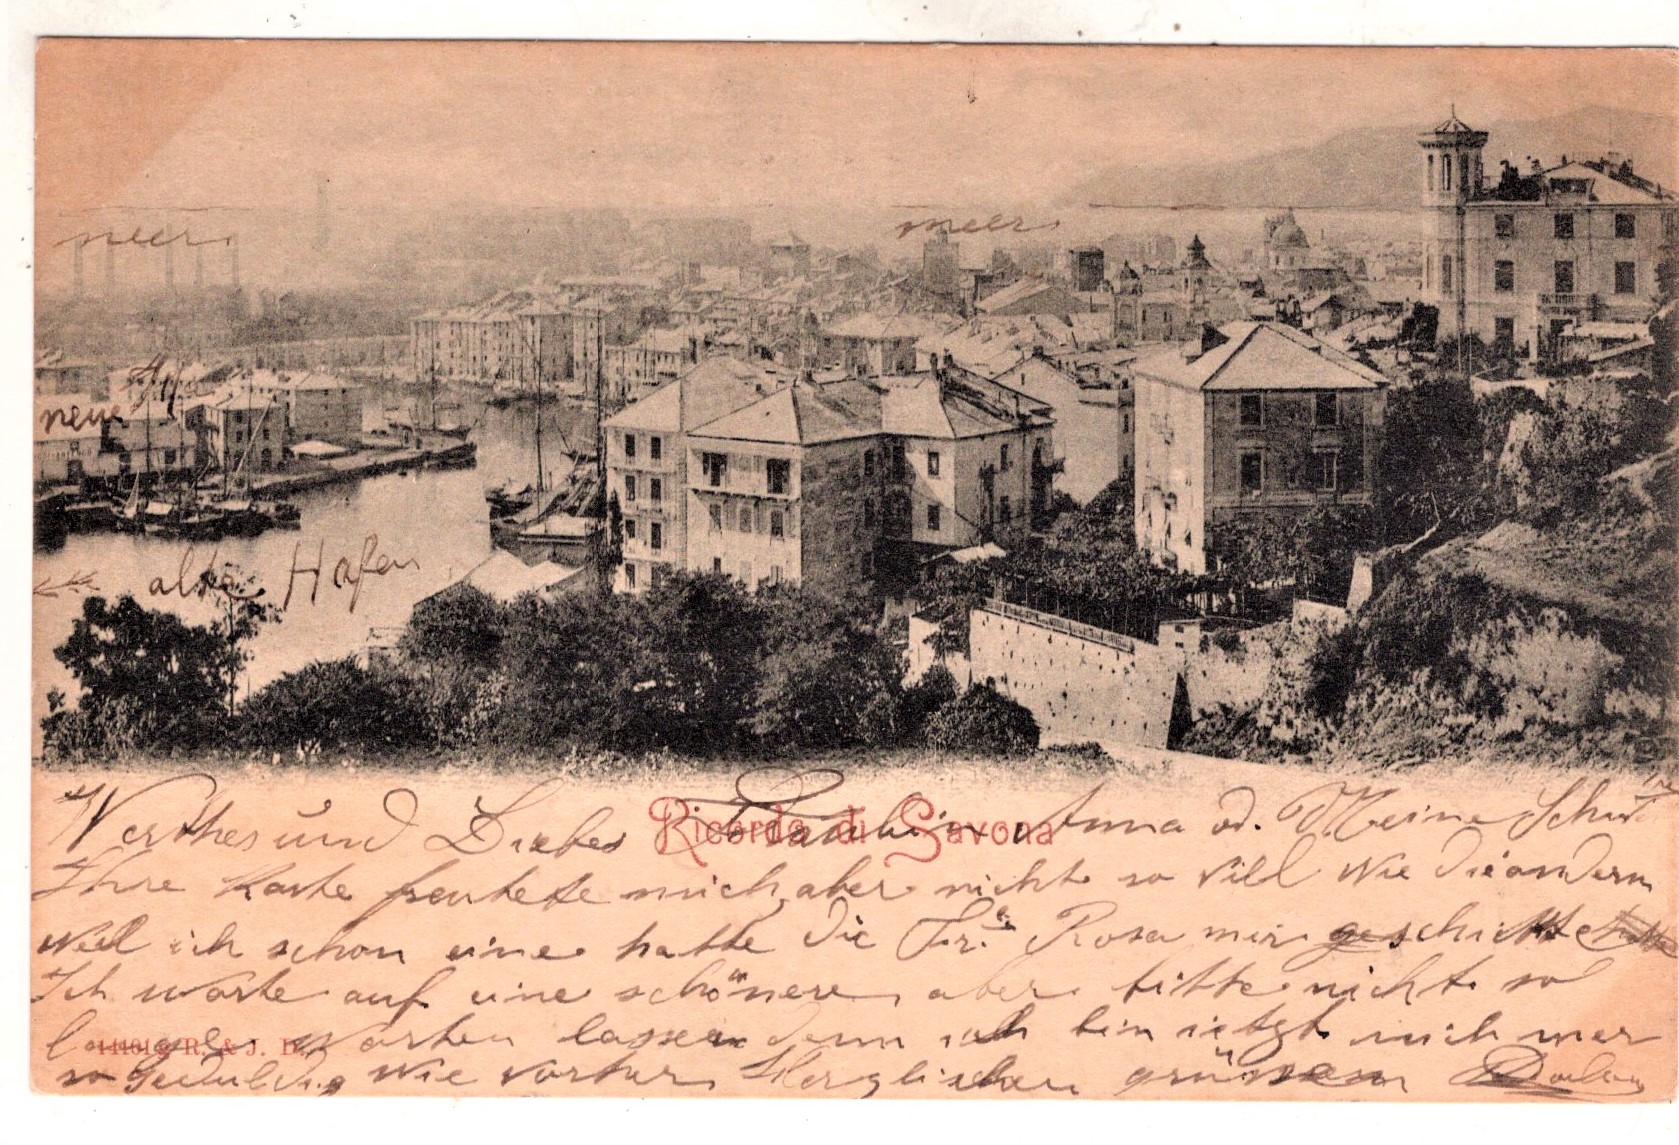 meer
meer
neue
alte Hafen
Ricordo di Savona
Werthes und Liebes Fräulein Anna od. Meine
Ihre Karte freutete mich aber nicht so vill wie die andern
weil ich schon eine hatte die Fr. Rosa mir geschickte
Ich warte auf eine schönere, aber bitte nicht so
lange warten lassen denn ich bin ietzt nich mer
so geduldig wie vorher Herzlichen grüssen
14461 R. & J. D.